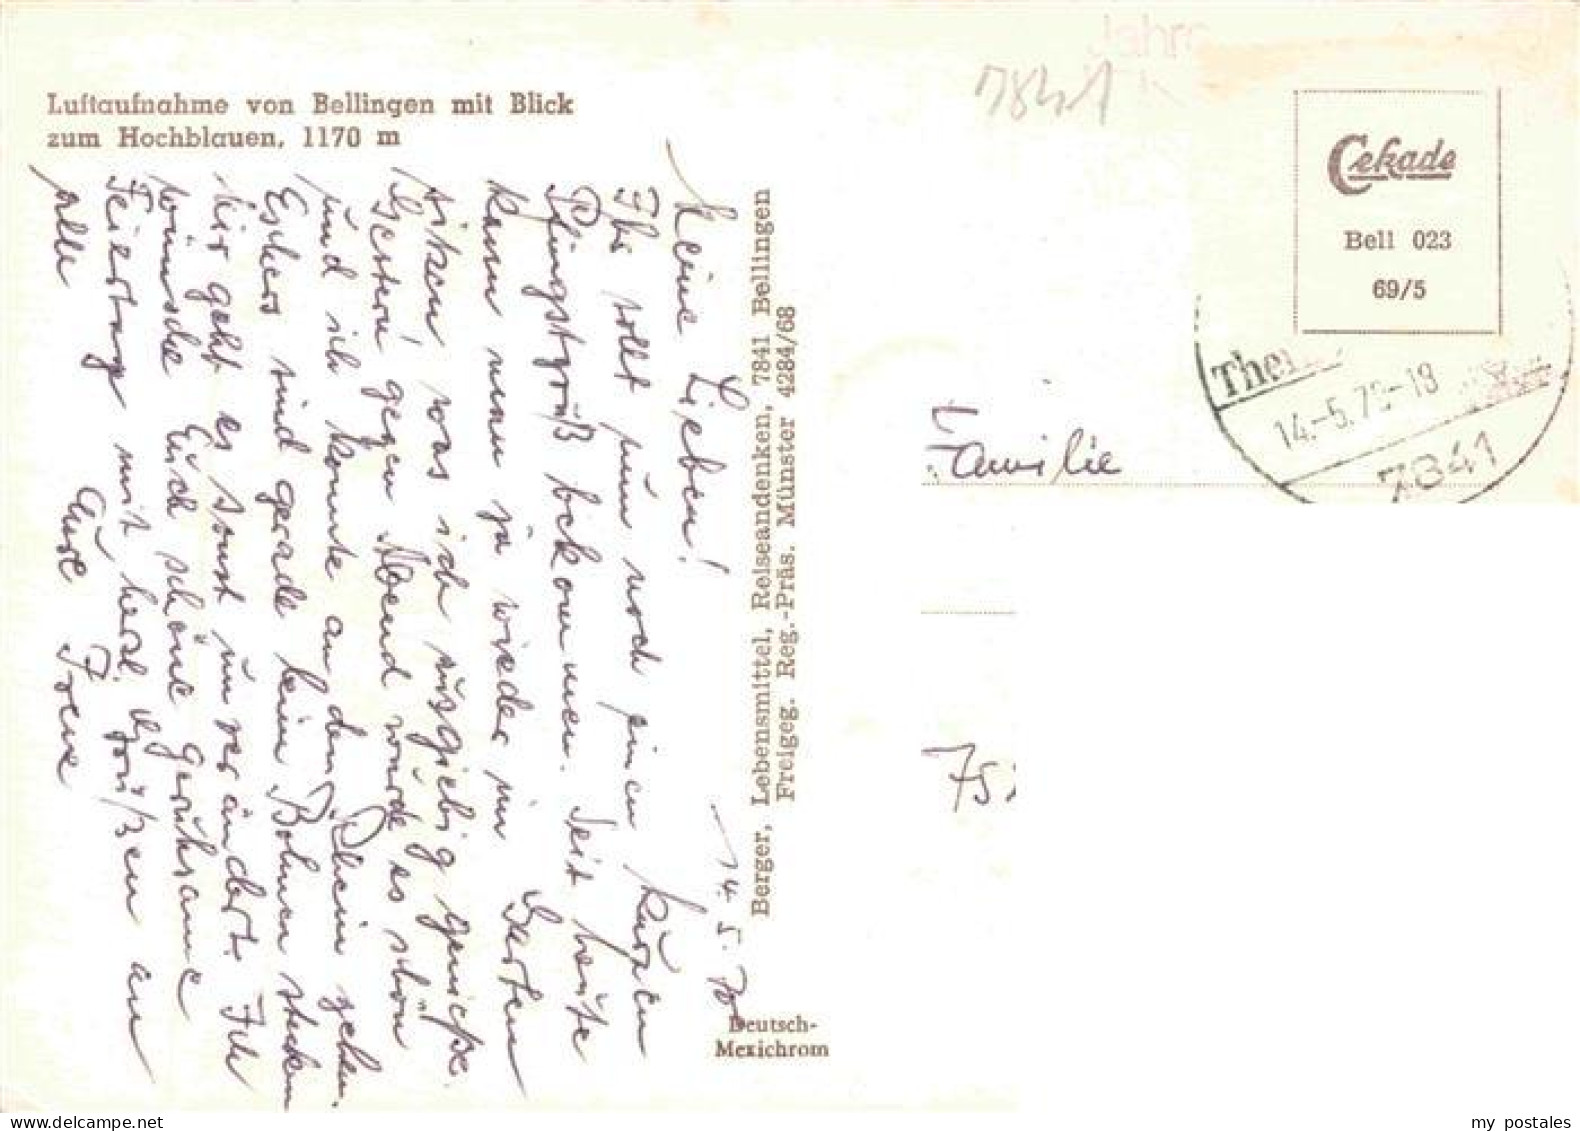 Luftaufnahme von Bellingen mit Blick
zum Hochblauen, 1170 m
14. 5. 70
Meine Lieben!
Ihr sollt nun noch einen kurzen
Pfingstgruß bekommen. Seit heute
kann man ja wieder im Garten
sitzen, was ich ausgiebig genieße.
Gestern gegen Abend wurde es schön
und ich konnte an den Rhein gehen.
Eshers sind gerade beim Bohnen stecken
Mir geht es sonst unverändert. Ich
wünsche Euch schöne geruhsame
Feiertage mit herzl. Grüßen an
alle Eure Irene
Berger, Lebensmittel, Reiseandenken, 7841 Bellingen
Freigeg. Reg.-Präs. Münster 4284/68
Deutsch-
Mexichrom
Jahr
7841
Cekade
Bell 023
69/5
The
14.-5.70-18
7841
Familie
75
my postales